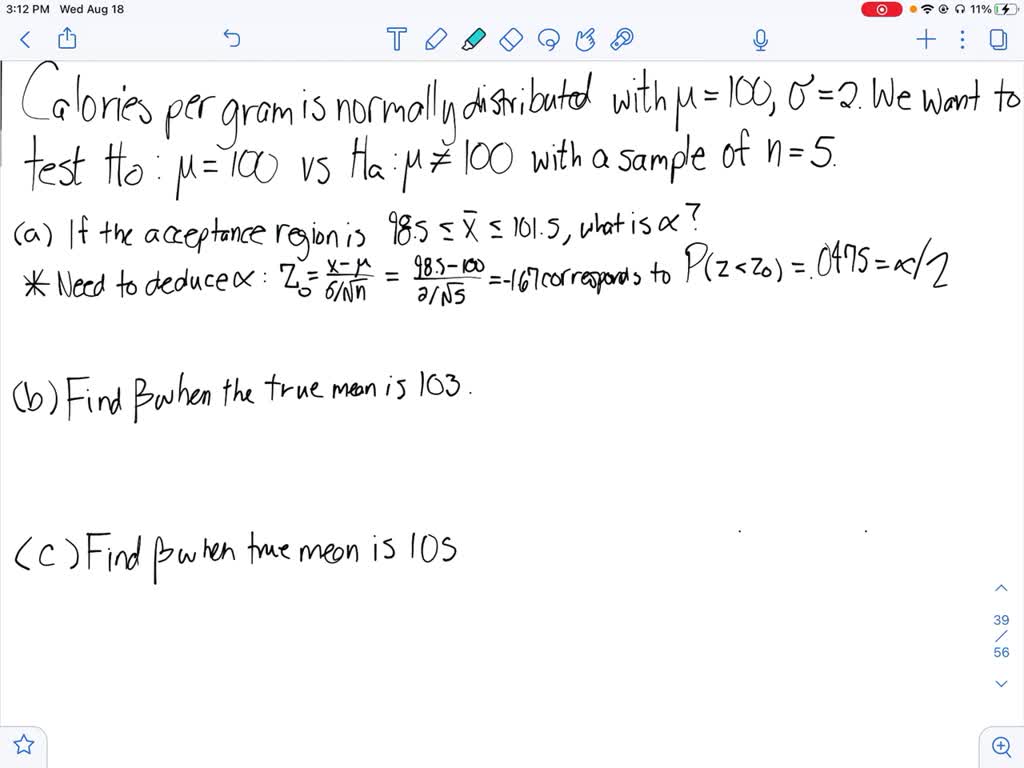 3:12 PM Wed Aug 18
11%
Calories per gram is normally distributed with μ = 100, σ = 2. We want to
test Ho : μ = 100 vs Ha : μ ≠ 100 with a sample of n = 5.
(a) If the acceptance region is 98.5 ≤ x̄ ≤ 101.5, what is α?
* Need to deduce α : Z₀ = (x - μ)/(σ/√n) = (98.5 - 100)/(2/√5) = -1.67 corresponds to P(Z < Z₀) = .0475 = α/2
(b) Find β when the true mean is 103.
(c) Find β when true mean is 105
39
/
56